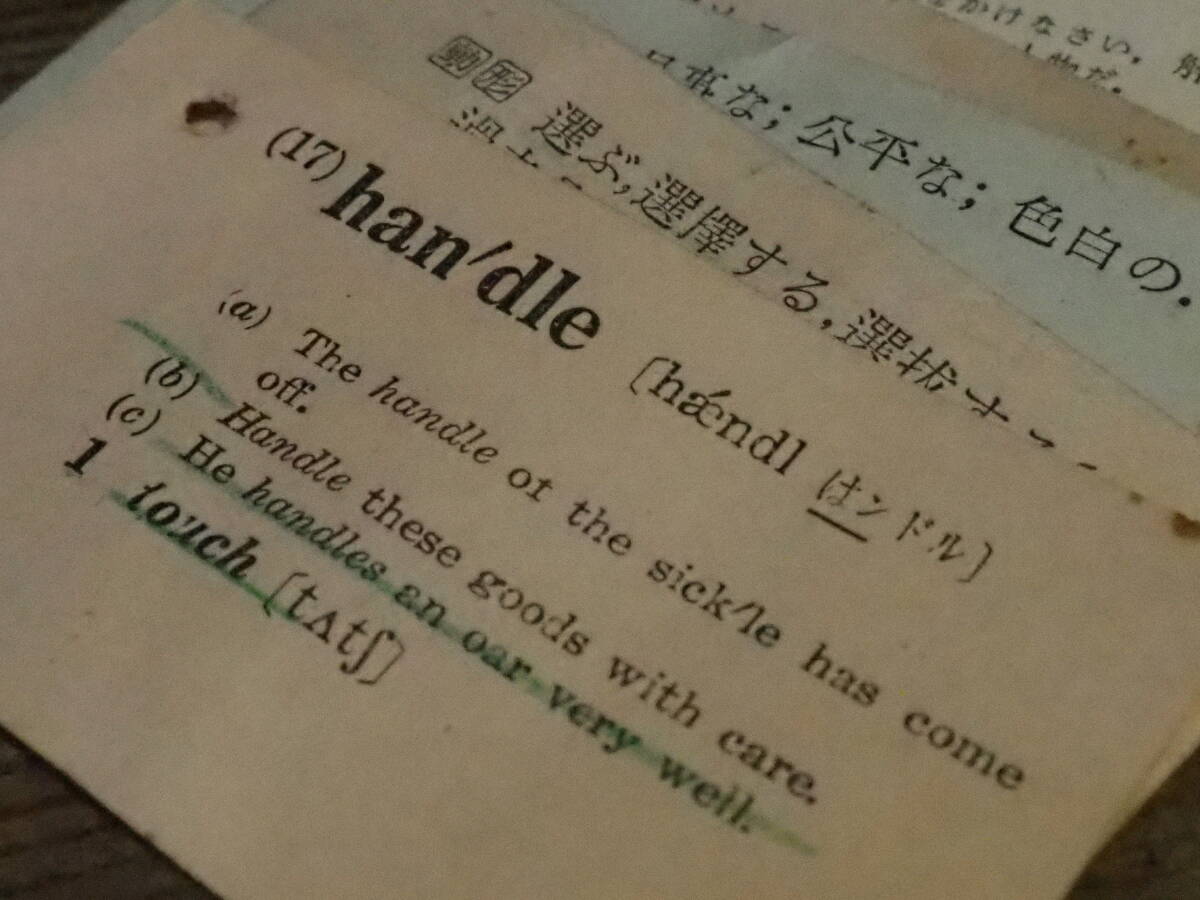 かけなさい.
公平な; 色白の.
動 形 選ぶ, 選擇する, 選拔す
(17) han′dle [hǽndl はンドル]
(a) The handle of the sick′le has come
off.
(b) Handle these goods with care.
(c) He handles an oar very well.
1 touch [tʌtʃ]